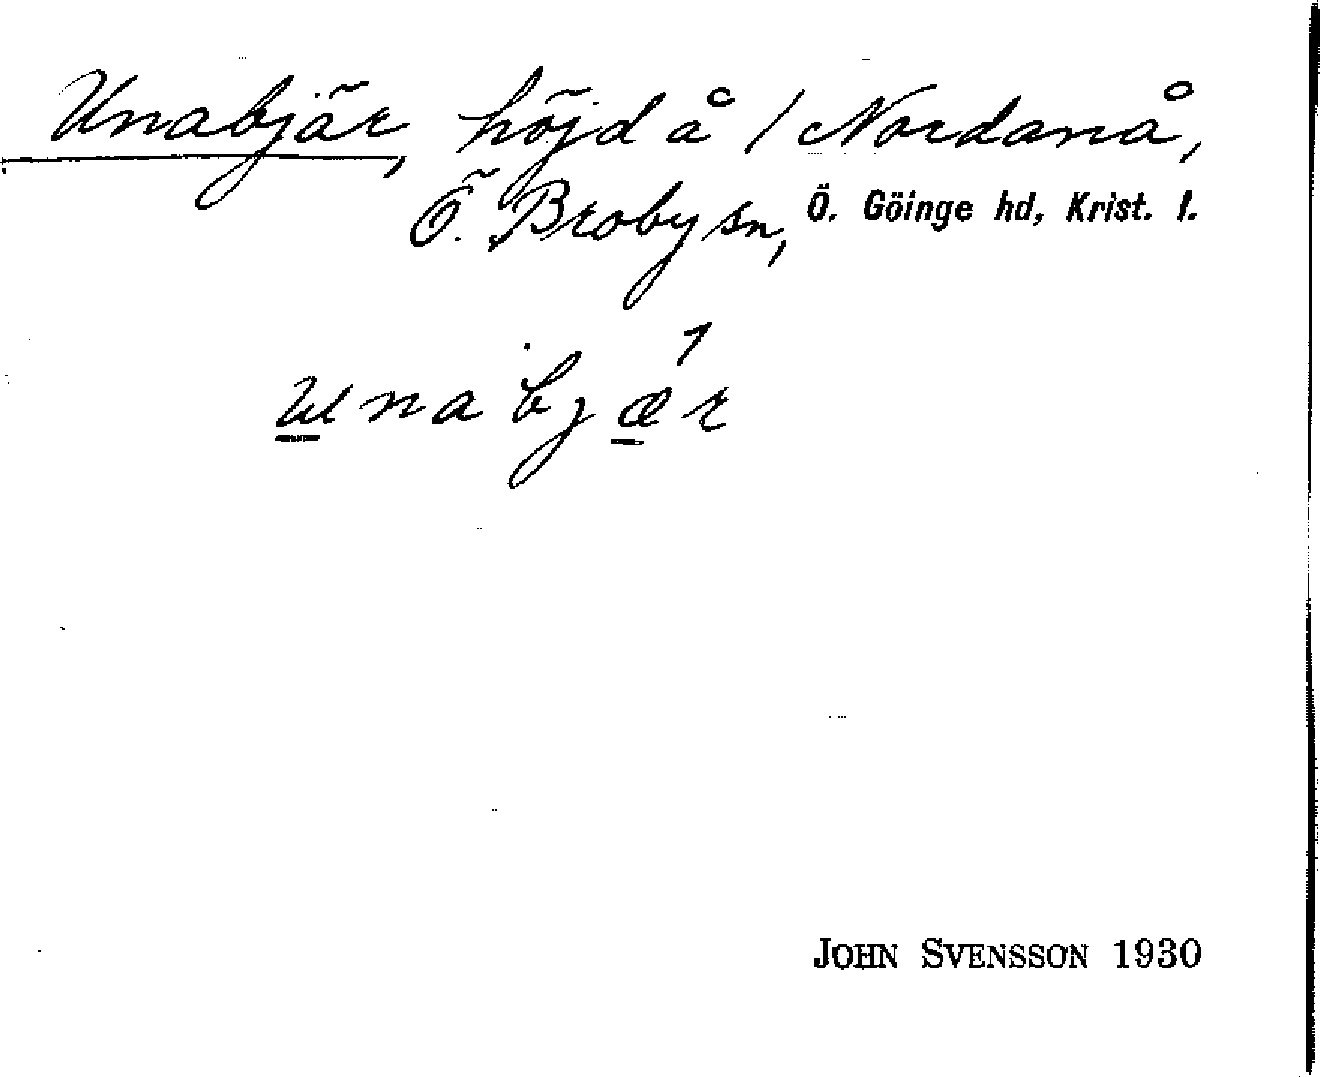 Unabjär, höjd å 1 Nordanå,
Ö. Broby sn, Ö. Göinge hd, Krist. l.
unabjær
JOHN SVENSSON 1930